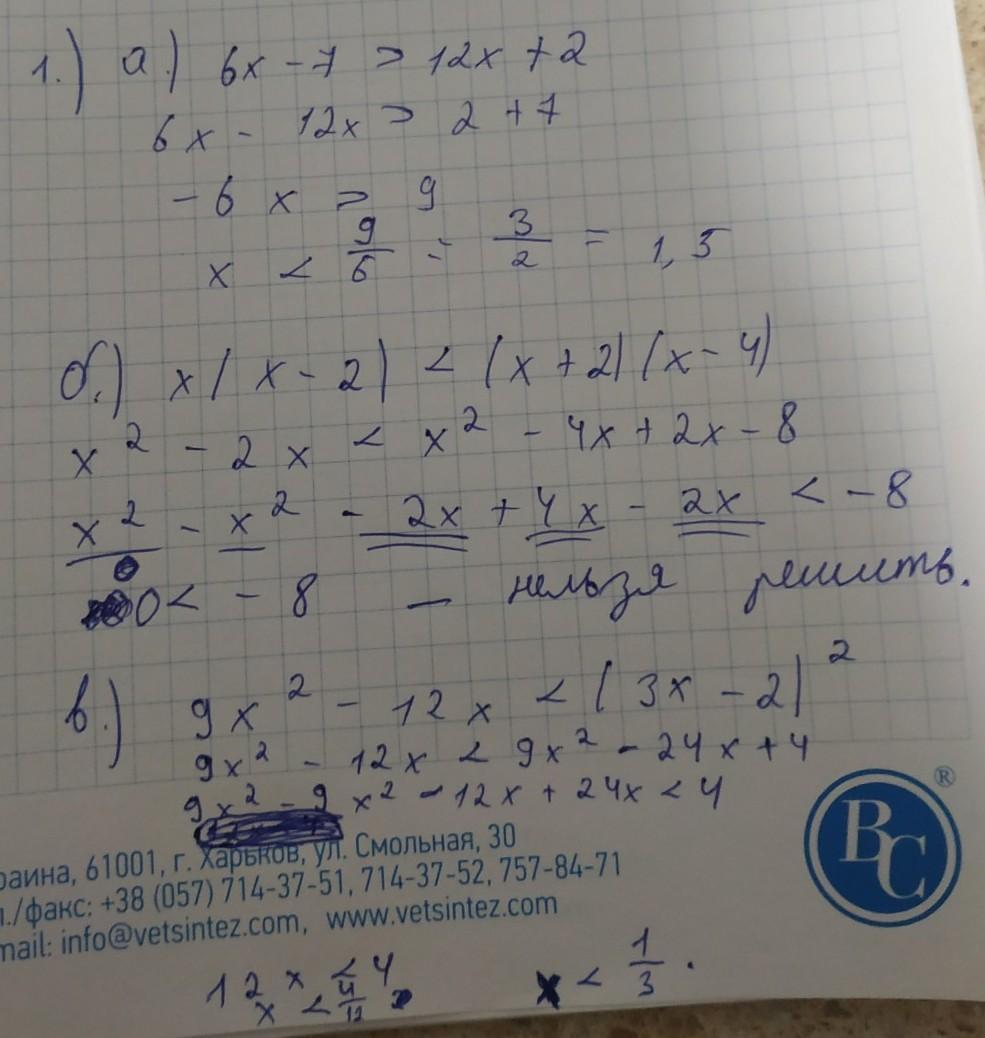 1.) а.) 6x - 7 > 12x + 2
6x - 12x > 2 + 7
-6x > 9
x < 9/6 = 3/2 = 1,5
б.) x(x - 2) < (x + 2)(x - 4)
x² - 2x < x² - 4x + 2x - 8
x² - x² - 2x + 4x - 2x < -8
0
0 < - 8 — нельзя решить.
в.) 9x² - 12x < (3x - 2)²
9x² - 12x < 9x² - 24x + 4
9x² - 9x² - 12x + 24x < 4
ВС ®
61001, г. Харьков, ул. Смольная, 30
факс: +38 (057) 714-37-51, 714-37-52, 757-84-71
info@vetsintez.com, www.vetsintez.com
12x < 4
x < 4/12
x < 1/3.